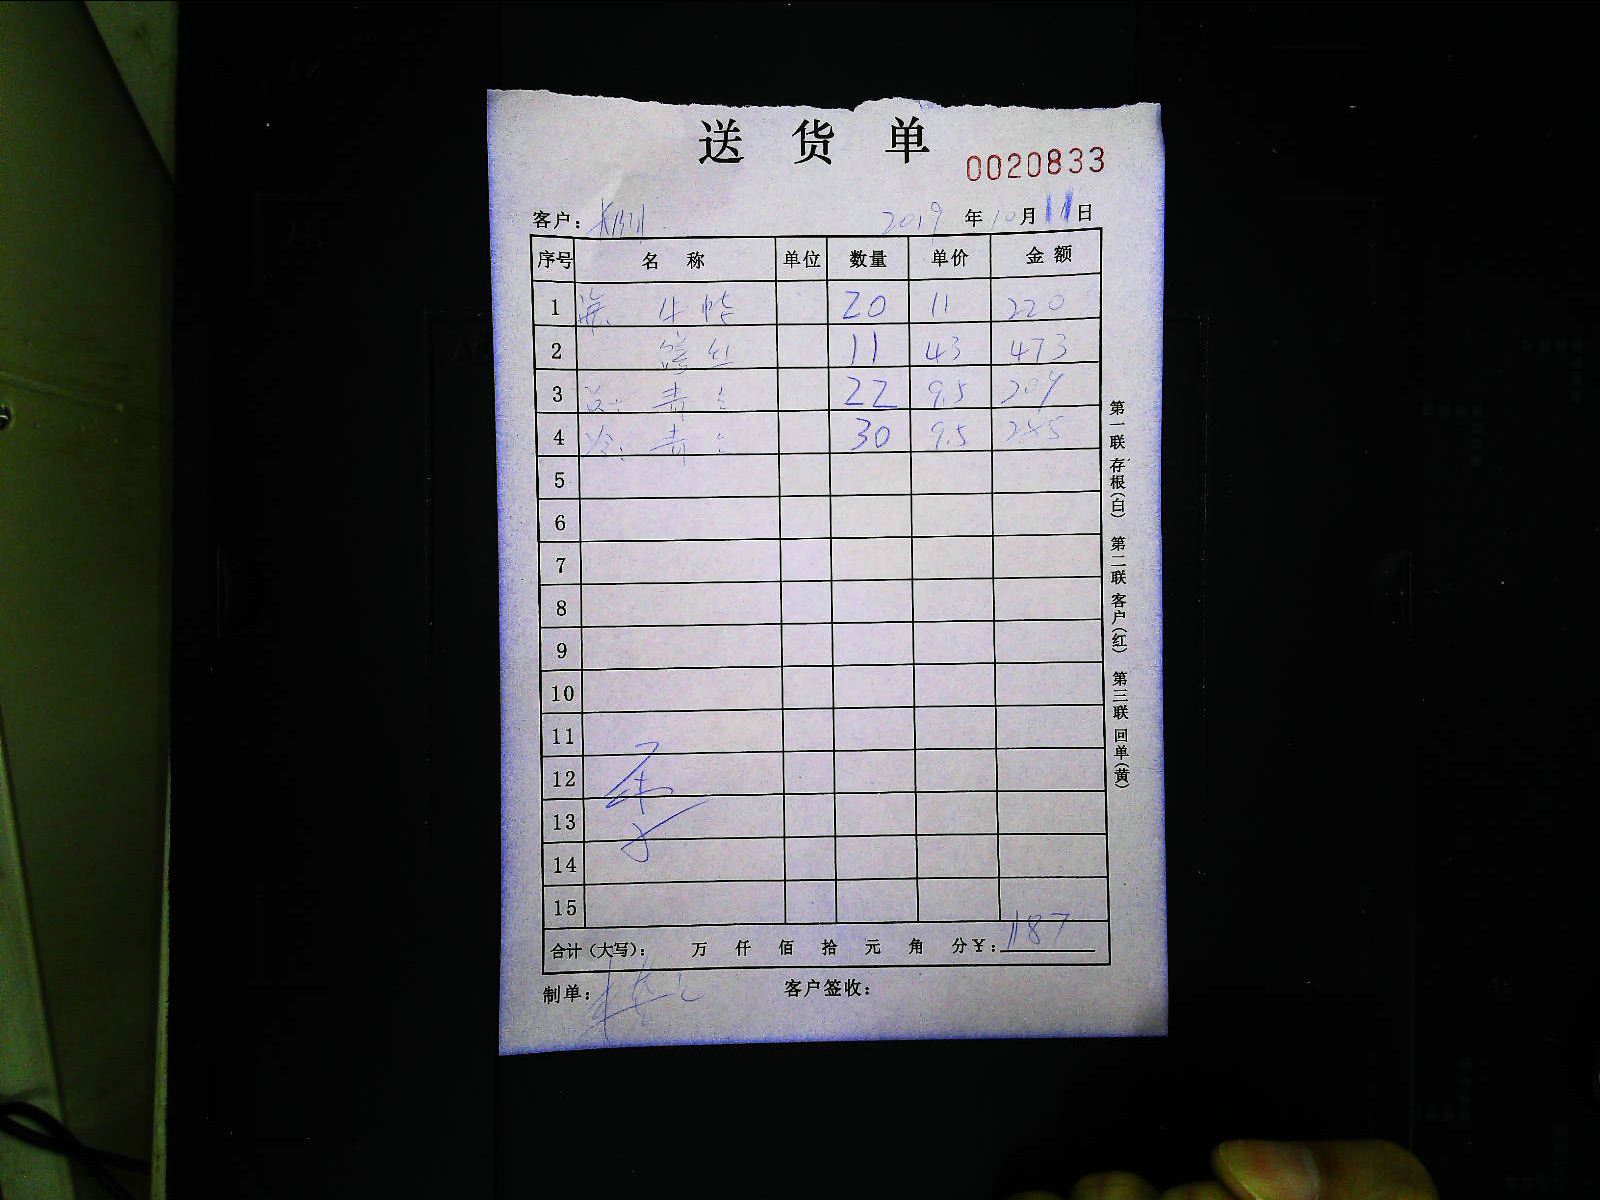 送货单
0020833
客户： 2019年10月11日
序号 名称 单位 数量 单价 金额
1 20 11 220
2 11 43 473
3 22 9.5 209
4 30 9.5 285
5
6
7
8
9
10
11
12
13
14
15
合计（大写）： 万 仟 佰 拾 元 角 分¥：1187
制单： 客户签收：
第一联 存根（白） 第二联 客户（红） 第三联 回单（黄）